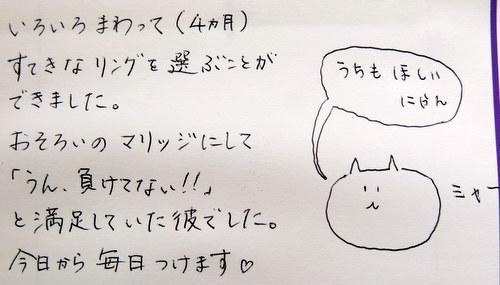 いろいろまわって(4ヵ月)
すてきなリングを選ぶことが
できました。
おそろいのマリッジにして
「うん、負けてない!!」
と満足していた彼でした。
今日から毎日つけます♡
うちもほしい
にゃん
ミャー